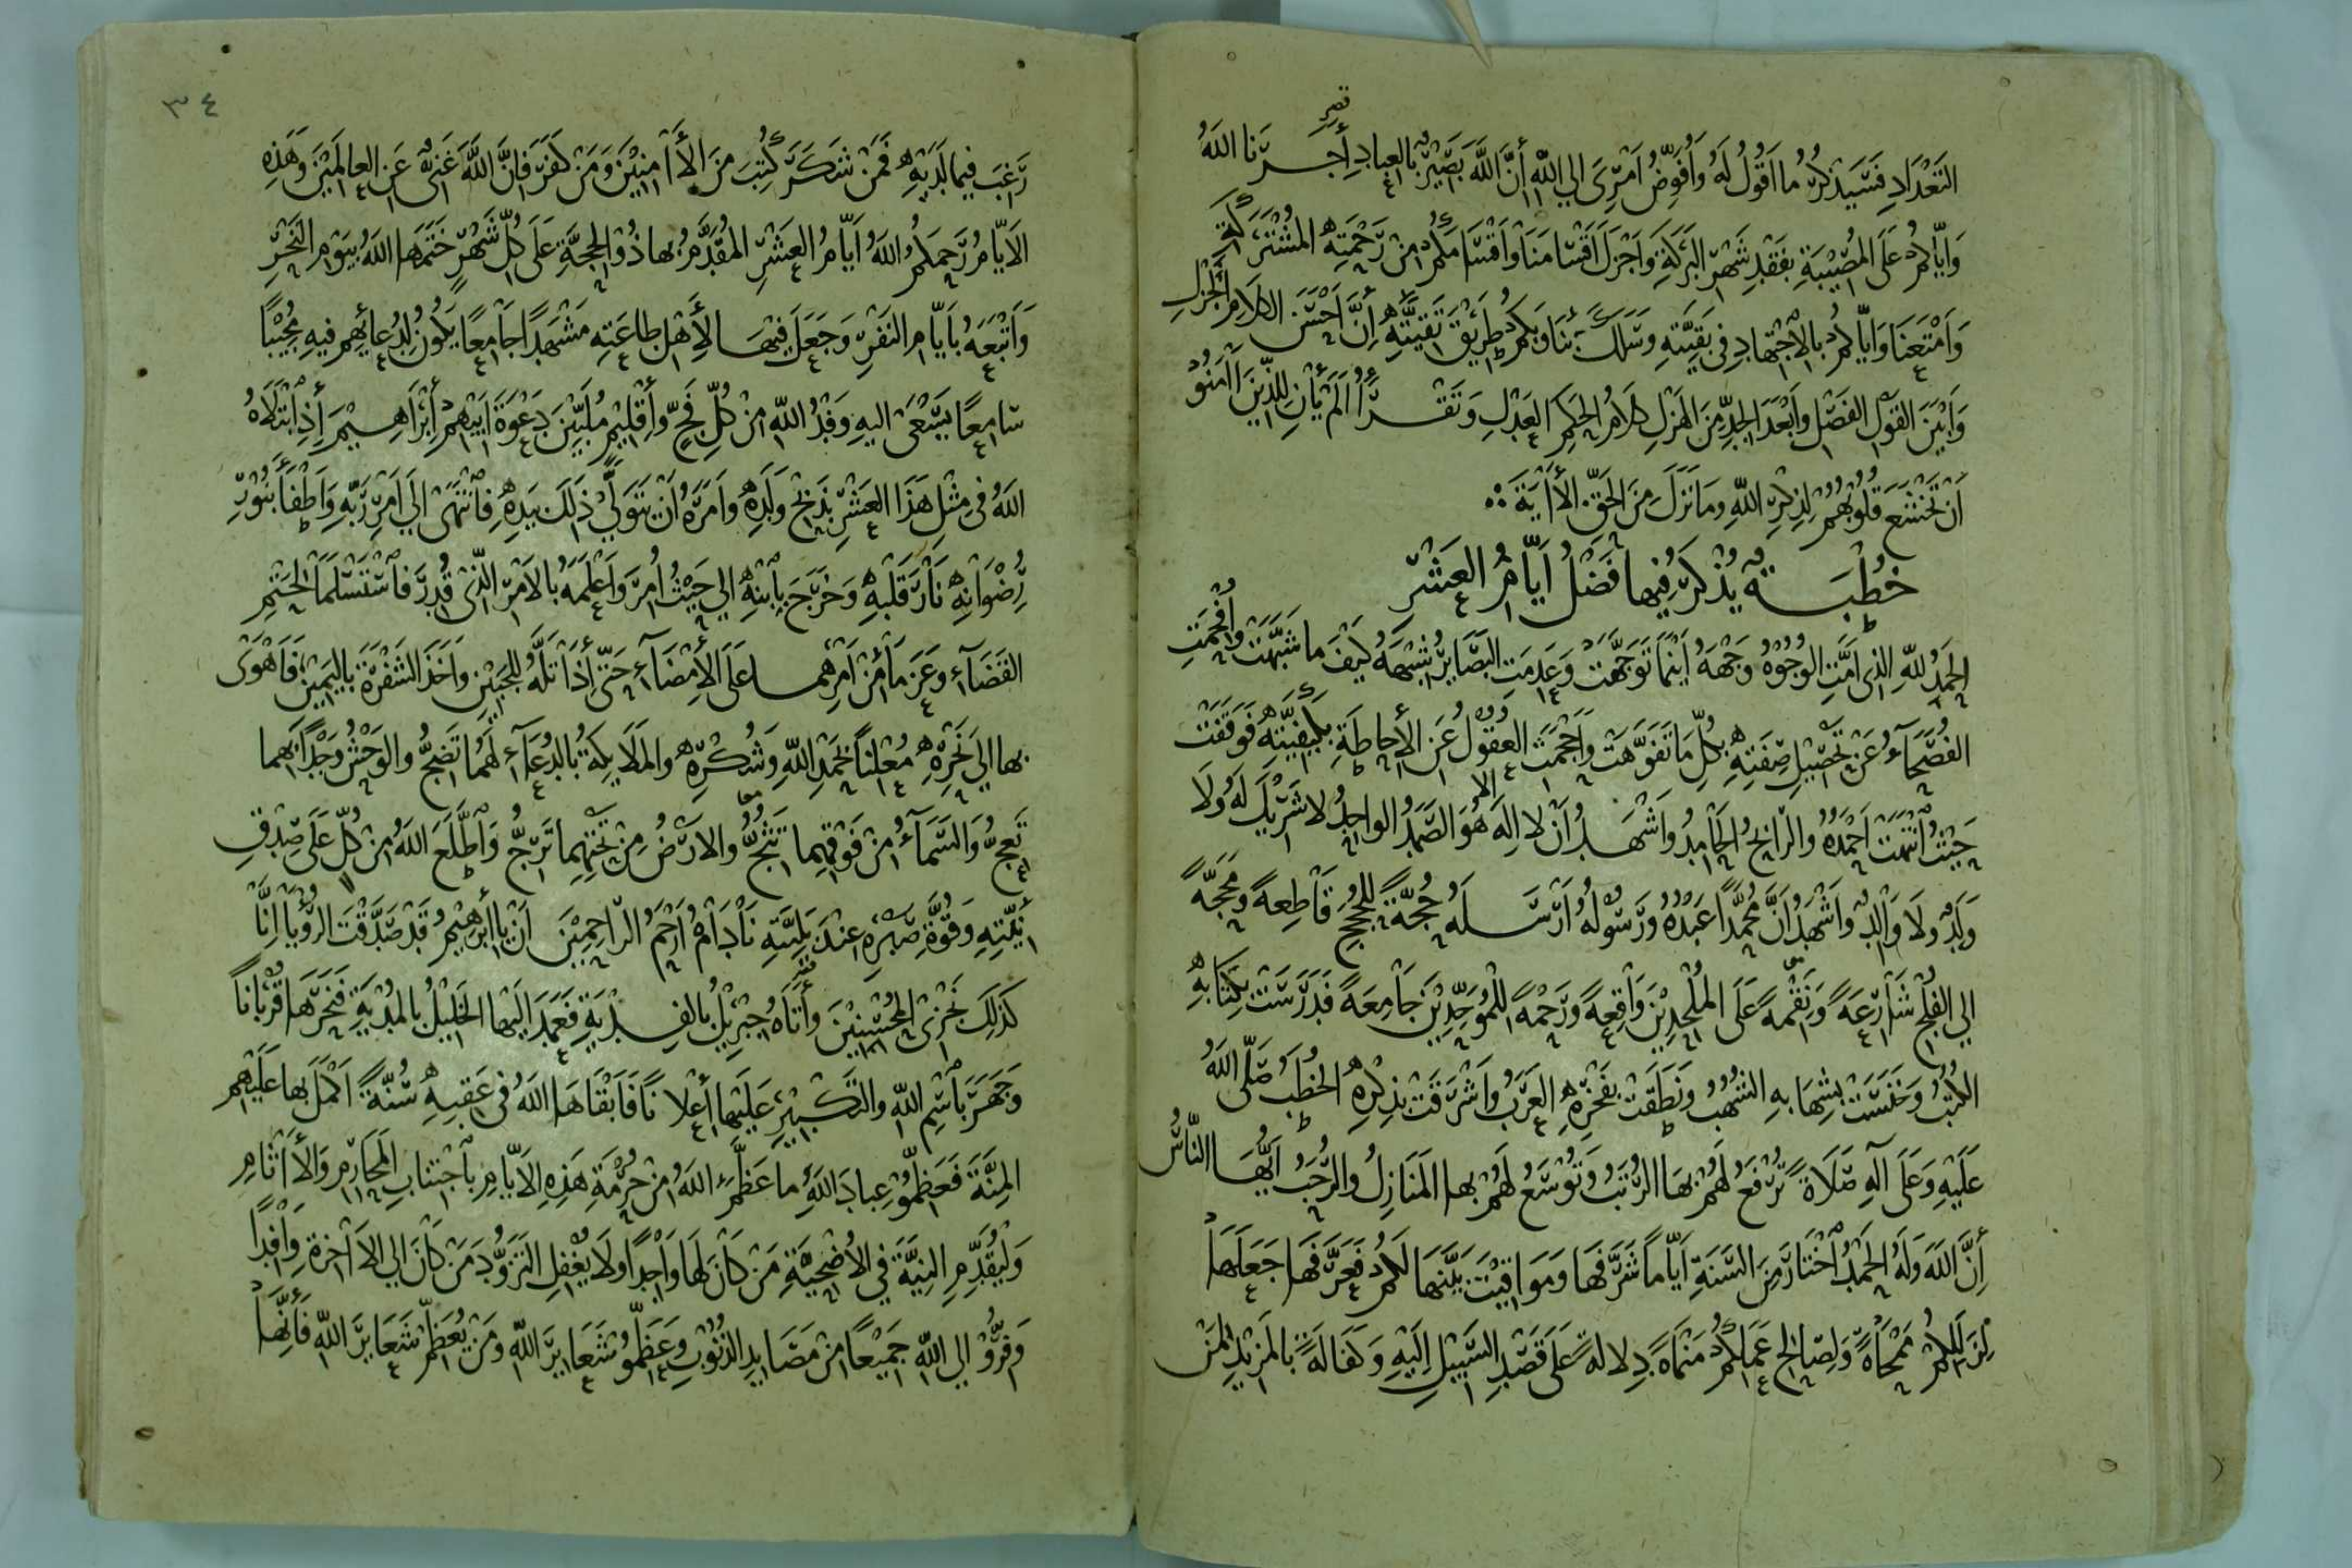 التَّعْدَادِ فَسَيَذْكُرُ مَا أَقُولُ لَهُ وَأُفَوِّضُ أَمْرِيَ إِلَى اللَّهِ أَنَّ اللَّهَ بَصِيرٌ بِالْعِبَادِ أَجَرَنَا اللَّهُ
وَإِيَّاكُمْ عَلَى الْمُصِيبَةِ بِفَقْدِ شَهْرِ الْبَرَكَةِ وَأَجْزَلَ أَقْسَامَنَا وَأَقْسَامَكُمْ مِنْ رَحْمَتِهِ الْمُشْتَرَكَةِ
وَأَمْتَعَنَا وَإِيَّاكُمْ بِالِاجْتِهَادِ فِي بَقِيَّتِهِ وَسَلَكَ بِنَا وَبِكُمْ طَرِيقَ تَقِيَّتِهِ إِنَّ أَحْسَنَ الْكَلَامِ الْجَزْلِ
وَأَبْيَنَ الْقَوْلِ الْفَصْلِ وَأَبْعَدَ الْجِدِّ مِنَ الْهَزْلِ كَلَامُ الْحَكَمِ الْعَدْلِ وَتَقْرَأُ أَلَمْ يَأْنِ لِلَّذِينَ آمَنُوا
أَنْ تَخْشَعَ قُلُوبُهُمْ لِذِكْرِ اللَّهِ وَمَا نَزَلَ مِنَ الْحَقِّ الْآيَةَ
خُطْبَةٌ يُذْكَرُ فِيهَا فَضْلُ أَيَّامِ الْعَشْرِ
الْحَمْدُ لِلَّهِ الَّذِي أَمَّتِ الْوُجُوهُ وَجْهَهُ أَيْنَمَا تَوَجَّهَتْ وَعَدِمَتِ الْبَصَائِرُ شِبْهَهُ كَيْفَ مَا شَبَّهَتْ وَأُفْحِمَتِ
الْفُصَحَاءُ عَنْ تَحْصِيلِ صِفَتِهِ بِكُلِّ مَا تَفَوَّهَتْ وَأَحْجَمَتِ الْعُقُولُ عَنِ الْإِحَاطَةِ بِكَيْفِيَّتِهِ فَوَقَفَتْ
حَيْثُ انْتَهَتْ أَحْمَدُهُ وَالرَّابِحُ الْحَامِدُ وَأَشْهَدُ أَنْ لَا إِلَهَ إِلَّا هُوَ الصَّمَدُ الْوَاحِدُ لَا شَرِيكَ لَهُ وَلَا
وَلَدٌ وَلَا وَالِدٌ وَأَشْهَدُ أَنَّ مُحَمَّدًا عَبْدُهُ وَرَسُولُهُ أَرْسَلَهُ حُجَّةً لِلْحُجَجِ قَاطِعَةً وَمَحَجَّةً
إِلَى الْفَلْجِ شَارِعَةً وَنِقْمَةً عَلَى الْمُلْحِدِينَ وَاقِعَةً وَرَحْمَةً لِلْمُوَحِّدِينَ جَامِعَةً فَدَرَسَتْ بِكِتَابِهِ
الْكُتُبُ وَخَنَسَتْ بِشِهَابِهِ الشُّهُبُ وَنَطَقَتْ بِفَخْرِهِ الْعَرَبُ وَأَشْرَقَتْ بِذِكْرِهِ الْخُطَبُ صَلَّى اللَّهُ
عَلَيْهِ وَعَلَى آلِهِ صَلَاةً تُرْفَعُ لَهُمْ بِهَا الرُّتَبُ وَتُوَسَّعُ لَهُمْ بِهَا الْمَنَازِلُ وَالرُّحَبُ أَيُّهَا النَّاسُ
أَنَّ اللَّهَ وَلَهُ الْحَمْدُ اخْتَارَ مِنَ السَّنَةِ أَيَّامًا شَرَّفَهَا وَمَوَاقِيتَ بَيَّنَهَا لَكُمْ فَعَرَّفَهَا جَعَلَهَا
لِزَلَلِكُمْ مَمْحَاةً وَلِصَالِحِ عَمَلِكُمْ مَنْمَاةً دِلَالَةً عَلَى قَصْدِ السَّبِيلِ إِلَيْهِ وَكَفَالَةً بِالْمَزِيدِ لِمَنْ
٣٤
رَغِبَ فِيمَا لَدَيْهِ فَمَنْ شَكَرَ كُتِبَ مِنَ الْآمِنِينَ وَمَنْ كَفَرَ فَإِنَّ اللَّهَ غَنِيٌّ عَنِ الْعَالَمِينَ وَهَذِهِ
الْأَيَّامُ رَحِمَكُمُ اللَّهُ أَيَّامُ الْعَشْرِ الْمُقَدَّمُ بِهَا ذُو الْحِجَّةِ عَلَى كُلِّ شَهْرٍ خَتَمَهَا اللَّهُ بِيَوْمِ النَّحْرِ
وَأَتْبَعَهُ بِأَيَّامِ النَّفْرِ وَجَعَلَ فِيهَا لِأَهْلِ طَاعَتِهِ مَشْهَدًا جَامِعًا يَكُونُ لِدُعَائِهِمْ فِيهِ مُجِيبًا
سَامِعًا يَسْعَى إِلَيْهِ وَفْدُ اللَّهِ مِنْ كُلِّ فَجٍّ وَإِقْلِيمٍ مُلَبِّينَ دَعْوَةَ أَبِيهِمْ إِبْرَاهِيمَ إِذِ ابْتَلَاهُ
اللَّهُ فِي مِثْلِ هَذَا الْعَشْرِ بِذَبْحِ وَلَدِهِ وَأَمَرَهُ أَنْ يَتَوَلَّى ذَلِكَ بِيَدِهِ فَانْتَهَى إِلَى أَمْرِ رَبِّهِ وَأَطْفَأَ بِنُورِ
رِضْوَانِهِ نَارَ قَلْبِهِ وَخَرَجَ بِابْنِهِ إِلَى حَيْثُ أُمِرَ وَأَعْلَمَهُ بِالْأَمْرِ الَّذِي قُدِرَ فَاسْتَسْلَمَا لِحَتْمِ
الْقَضَاءِ وَعَزَمَا مِنْ أَمْرِهِمَا عَلَى الْإِمْضَاءِ حَتَّى إِذَا تَلَّهُ لِلْجَبِينِ وَأَخَذَ الشَّفْرَةَ بِالْيَمِينِ فَأَهْوَى
بِهَا إِلَى نَحْرِهِ مُعْلِنًا بِحَمْدِ اللَّهِ وَشُكْرِهِ وَالْمَلَائِكَةُ بِالدُّعَاءِ لَهُمَا تَضِجُّ وَالْوَحْشُ وَجْدًا بِهِمَا
تَعِجُّ وَالسَّمَاءُ مِنْ فَوْقِهِمَا تَثُجُّ وَالْأَرْضُ مِنْ تَحْتِهِمَا تَرْتَجُّ وَاطَّلَعَ اللَّهُ مِنْ كُلٍّ عَلَى صِدْقِ
نِيَّتِهِ وَقُوَّةِ صَبْرِهِ عِنْدَ بَلِيَّتِهِ نَادَاهُ أَرْحَمُ الرَّاحِمِينَ أَنْ يَا إِبْرَاهِيمُ قَدْ صَدَّقْتَ الرُّؤْيَا إِنَّا
كَذَلِكَ نَجْزِي الْمُحْسِنِينَ وَأَتَاهُ جِبْرِيلُ بِالْفِدْيَةِ فَعَمَدَ إِلَيْهَا الْخَلِيلُ بِالْمُدْيَةِ فَنَحَرَهَا قُرْبَانًا
وَجَهَرَ بِاسْمِ اللَّهِ وَالتَّكْبِيرِ عَلَيْهَا إِعْلَانًا فَأَبْقَاهَا اللَّهُ فِي عَقِبِهِ سُنَّةً أَكْمَلَ بِهَا عَلَيْهِمْ
الْمِنَّةَ فَعَظِّمُوا عِبَادَ اللَّهِ مَا عَظَّمَ اللَّهُ مِنْ حُرْمَةِ هَذِهِ الْأَيَّامِ بِاجْتِنَابِ الْمَحَارِمِ وَالْآثَامِ
وَلْيُقَدِّمِ النِّيَّةَ فِي الْأُضْحِيَّةِ مَنْ كَانَ لَهَا وَاجِدًا وَلَا يُغْفِلِ التَّزَوُّدَ مَنْ كَانَ إِلَى الْآخِرَةِ وَافِدًا
وَفِرُّوا إِلَى اللَّهِ جَمِيعًا مِنْ مَصَايِدِ الذُّنُوبِ وَعَظِّمُوا شَعَايِرَ اللَّهِ وَمَنْ يُعَظِّمْ شَعَايِرَ اللَّهِ فَإِنَّهَا